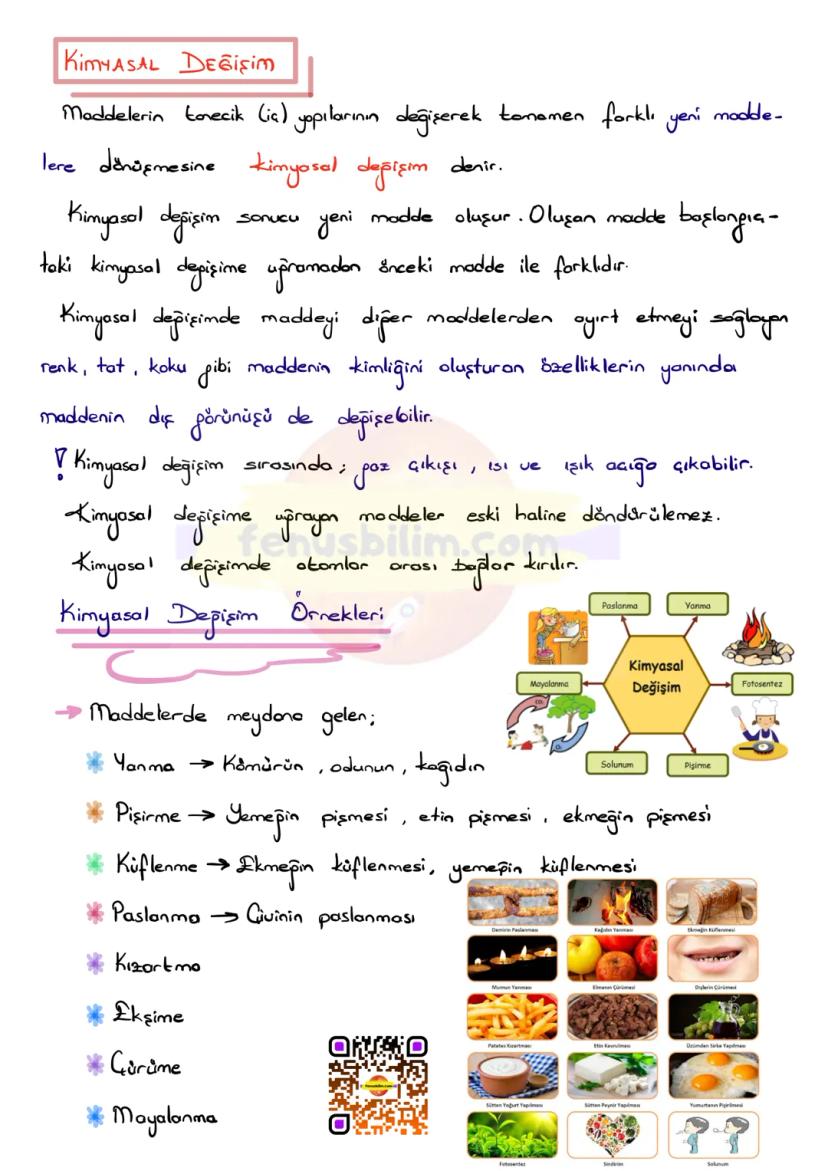 KİMYASAL DEĞİŞİM
Maddelerin tanecik (iç) yapılarının değişerek tamamen farklı yeni madde-
lere dönüşmesine kimyasal değişim denir.
Kimyasal değişim sonucu yeni madde oluşur. Oluşan madde başlangıç-
taki kimyasal değişime uğramadan önceki madde ile farklıdır.
Kimyasal değişimde maddeyi diğer maddelerden ayırt etmeyi sağlayan
renk, tat, koku gibi maddenin kimliğini oluşturan özelliklerin yanında
maddenin dış görünüşü de değişebilir.
! Kimyasal değişim sırasında; gaz çıkışı, ısı ve ışık açığa çıkabilir.
Kimyasal değişime uğrayan maddeler eski haline döndürülemez.
fenusbilim.com
Kimyasal değişimde atomlar arası bağlar kırılır.
Kimyasal Değişim Örnekleri
Paslanma Yanma
Kimyasal
Değişim
Mayalanma Fotosentez
CO₂
O₂
Solunum Pişirme
→ Maddelerde meydana gelen;
Yanma → Kömürün, odunun, kağıdın
Pişirme → Yemeğin pişmesi, etin pişmesi, ekmeğin pişmesi
Küflenme → Ekmeğin küflenmesi, yemeğin küflenmesi
Paslanma → Çivinin paslanması
Kızartma
Ekşime
Çürüme
Mayalanma
fenusbilim.com
Demirin Paslanması Kağıdın Yanması Ekmeğin Küflenmesi
Mumun Yanması Elmanın Çürümesi Dişlerin Çürümesi
Patates Kızartması Etin Kavrulması Üzümden Sirke Yapılması
Sütten Yoğurt Yapılması Sütten Peynir Yapılması Yumurtanın Pişirilmesi
Fotosentez Sindirim Solunum